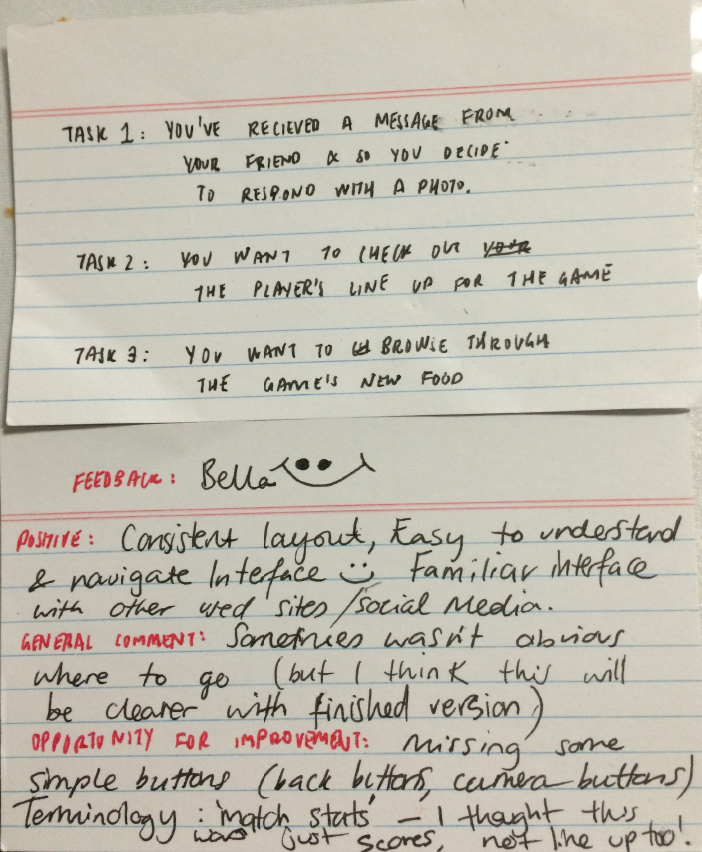 TASK 1: YOU'VE RECIEVED A MESSAGE FROM
YOUR FRIEND & SO YOU DECIDE
TO RESPOND WITH A PHOTO.
TASK 2: YOU WANT TO CHECK OUT YOUR
THE PLAYER'S LINE UP FOR THE GAME
TASK 3: YOU WANT TO BROWSE THROUGH
THE GAME'S NEW FOOD
FEEDBACK: Bella
POSITIVE: Consistent layout, Easy to understand
& navigate Interface Familiar interface
with other used sites/social media.
GENERAL COMMENT: Sometimes wasn't obvious
where to go (but I think this will
be clearer with finished version)
OPPORTUNITY FOR IMPROVEMENT: Missing some
simple buttons (back buttons, camera buttons)
Terminology: 'match stats' – I thought this
was just scores, not line up too!